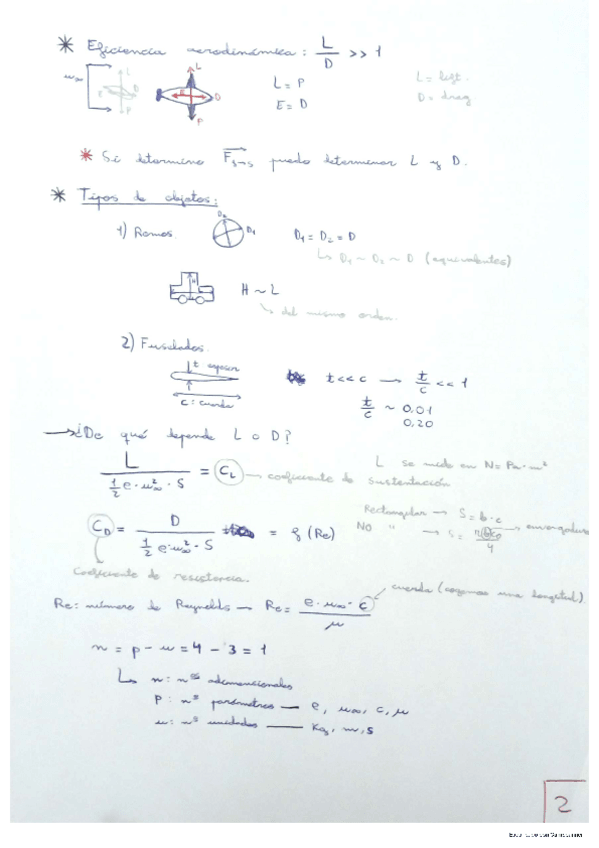 * Eficiencia aerodinámica: L/D >> 1
u∞ L D P L E D P L = P L = lift.
E = D D = drag
* Si determino F s→s puedo determinar L y D.
* Tipos de objetos:
1) Romos. D2 D1 D1 = D2 = D
↳ D1 ~ D2 ~ D (equivalentes)
H H ~ L
↳ del mismo orden.
2) Fuselados.
t espesor t << c → t/c << 1
c: cuerda t/c ~ 0,01
0,20
→ ¿De qué depende L o D?
L / (1/2 ρ · u∞² · S) = CL → coeficiente de sustentación L se mide en N = Pa · m²
Rectangular → S = b · c
CD = D / (1/2 ρ · u∞² · S) = f (Re) NO " → S = /4 → envergadura
Coeficiente de resistencia.
Re: número de Reynolds → Re = ρ · u∞ · c / μ cuerda (cogemos una longitud)
n = p - u = 4 - 3 = 1
↳ n: nºs adimensionales
p: nº parámetros — ρ, u∞, c, μ
u: nº unidades — Kg, m, s
2